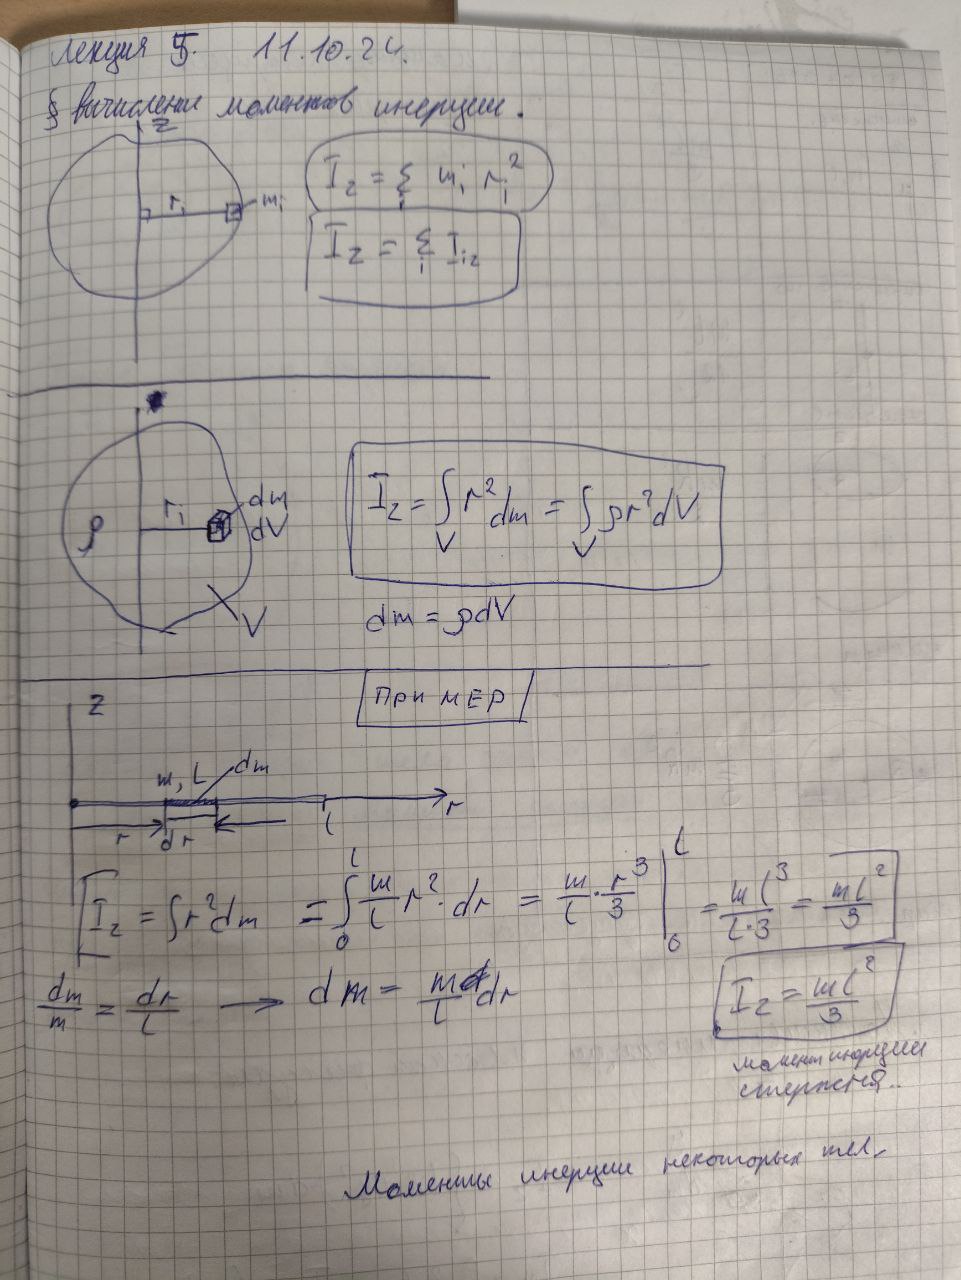 Лекция 5. 11.10.24.
§ Вычисление моментов инерции.
z
r_i m_i
I_z = Σ_i m_i r_i²
I_z = Σ_i I_iz
ρ r_i dm
dV
V
I_z = ∫_V r² dm = ∫_V ρr² dV
dm = ρdV
ПРИМЕР
z
m, L dm
r dr l r
I_z = ∫r²dm = ∫_0^l m/l r² · dr = m/l · r³/3 |_0^l = ml³/l·3 = ml²/3
dm/m = dr/l → dm = m/l dr
I_z = ml²/3
момент инерции
стержня.
Моменты инерции некоторых тел.